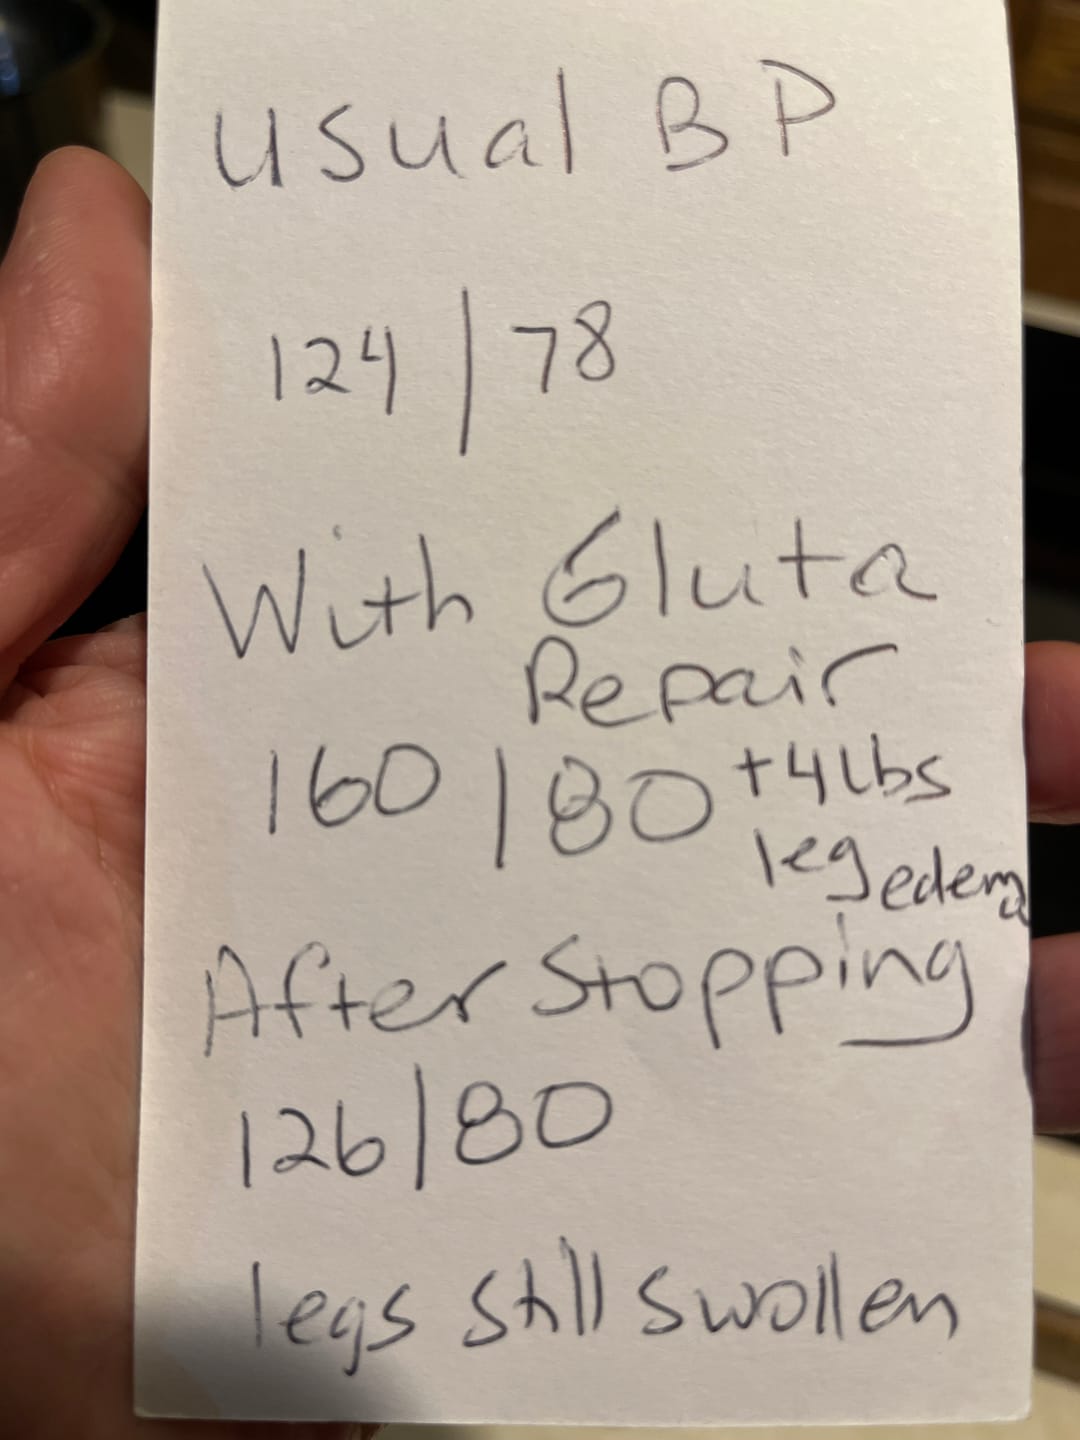 usual BP
124 | 78
With Gluta
Repair
160 | 80 +4lbs
leg edema
After Stopping
126 | 80
legs still swollen